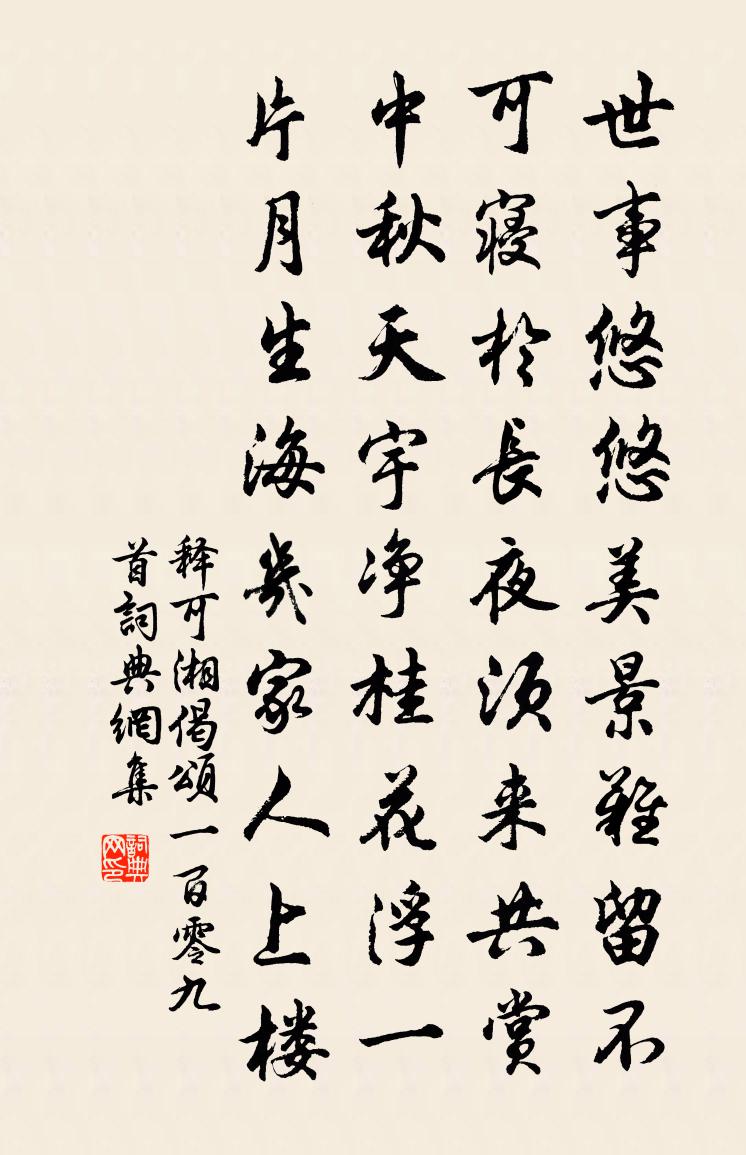 世事悠悠美景难留不
可寝於長夜须来共赏
中秋天宇净桂花浮一
片月生海幾家人上楼
释可湘偈頌一百零九
首詞典網集
詞典网印